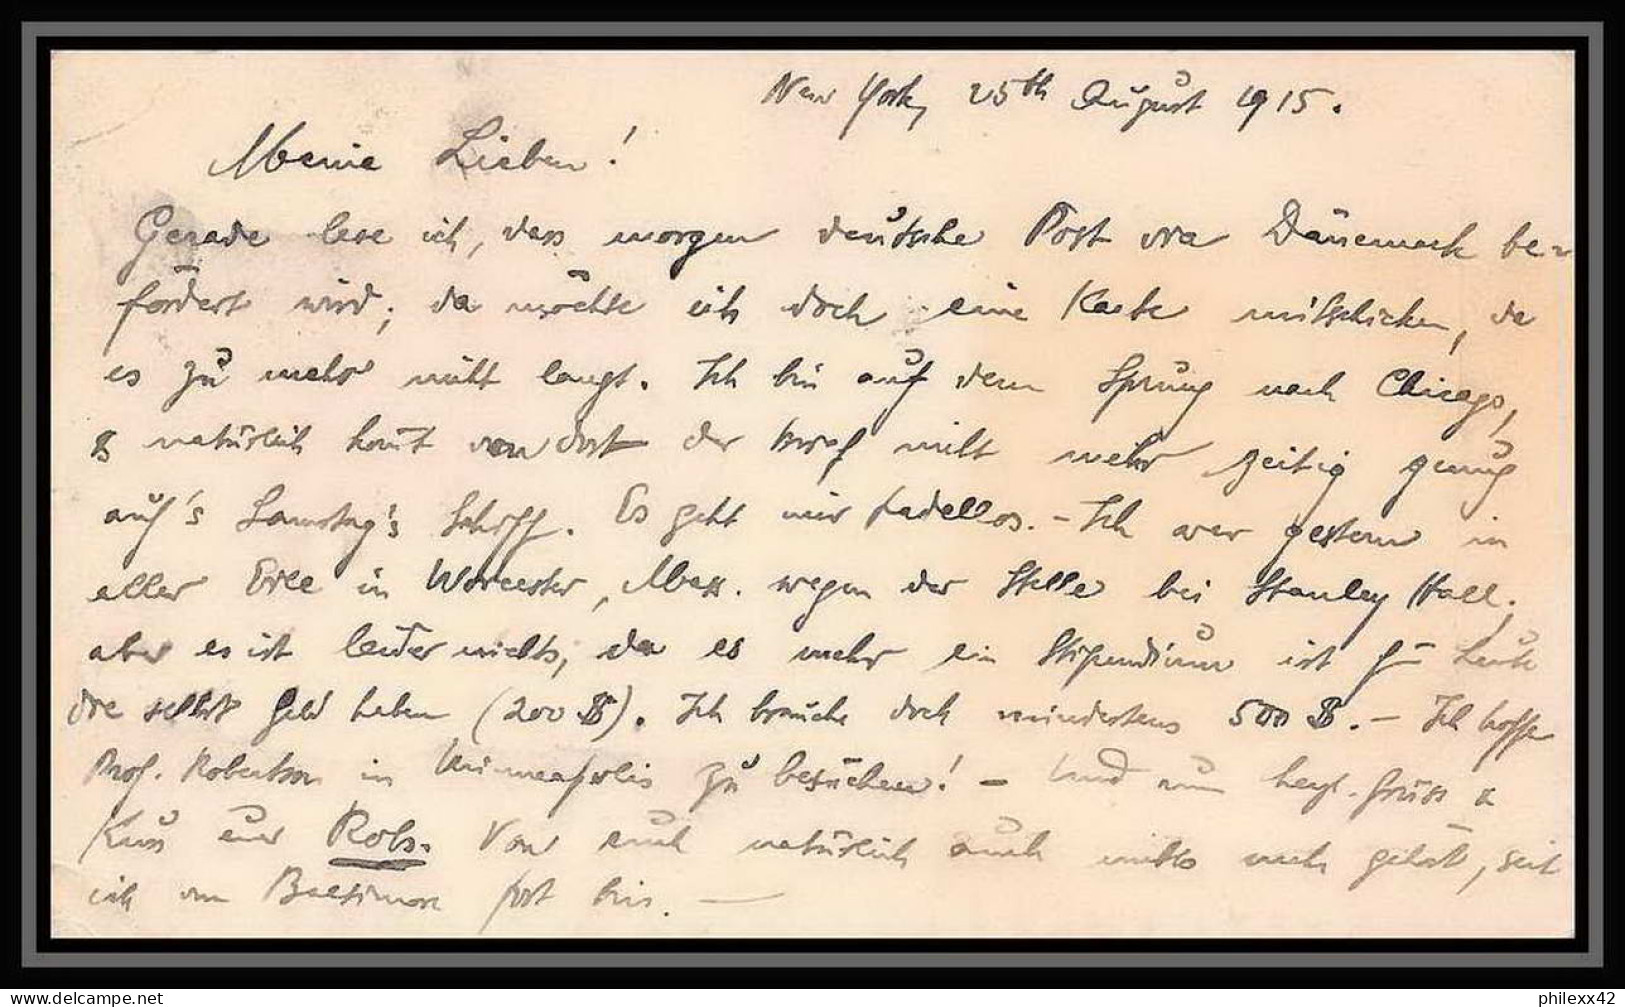 New York, 25th August 1915.
Meine Lieben!
Gerade lese ich, dass morgen deutsche Post via Dänemark be-
fördert wird; da möchte ich doch eine Karte mitschicken, da
es zu mehr nicht langt. Ich bin auf dem Sprung nach Chicago,
& natürlich kommt von dort der Brief nicht mehr zeitig genug
auf's Samstag's Schiff. Es geht mir tadellos. - Ich war gestern in
aller Eile in Worcester, Mass. wegen der Stelle bei Stanley Hall.
aber es ist leider nichts, da es mehr ein Stipendium ist für Leute
die selbst Geld haben (200 $). Ich brauche doch mindestens 500 $. - Ich hoffe
Prof. Robertson in Minneapolis zu besuchen! - Und nun herzl. Gruss &
Kuss euer Rob. Von euch natürlich auch nichts mehr gehört, seit
ich von Baltimore fort bin. -
philexx42